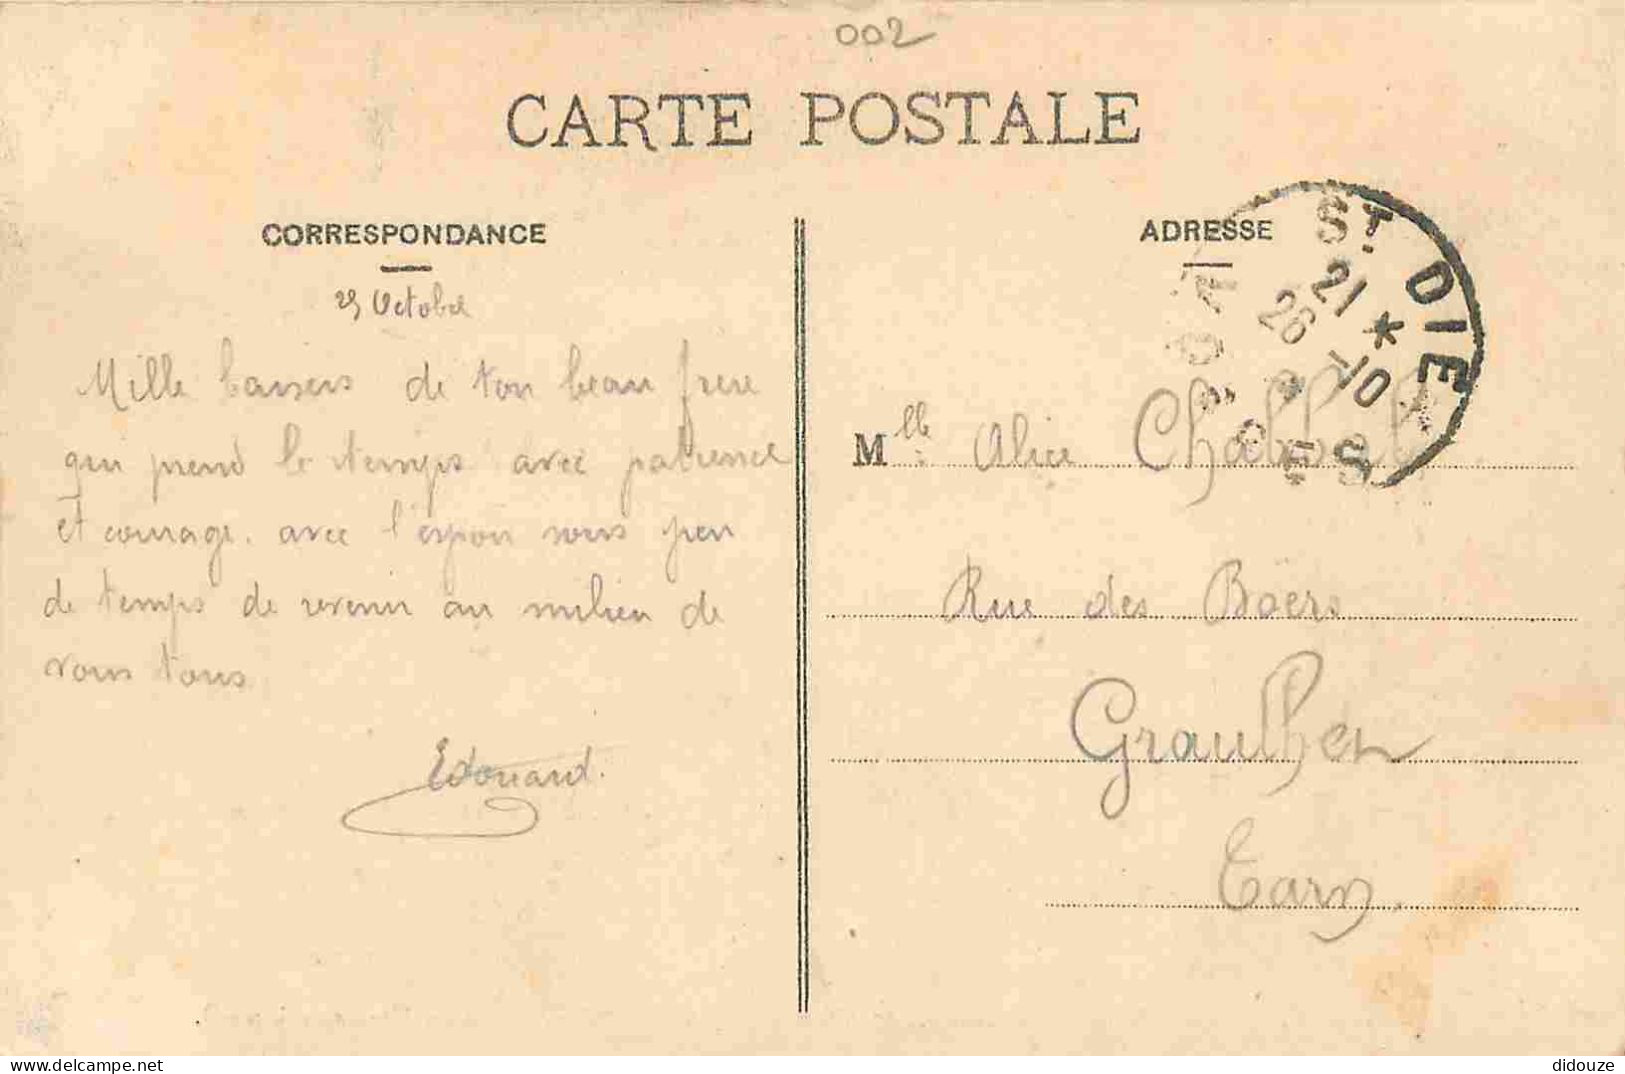 002
CARTE POSTALE
CORRESPONDANCE
25 Octobre
Mille baisers de ton beau frere
qui prend le temps avec patience
et courage. avec l'espoir sous peu
de temps de revenir au milieu de
vous tous
Edouard.
ADRESSE
ST DIE
VOSGES
21 *
26 -10
Mlle Alice
Rue des Boers
Graulhet
Tarn.
didouze